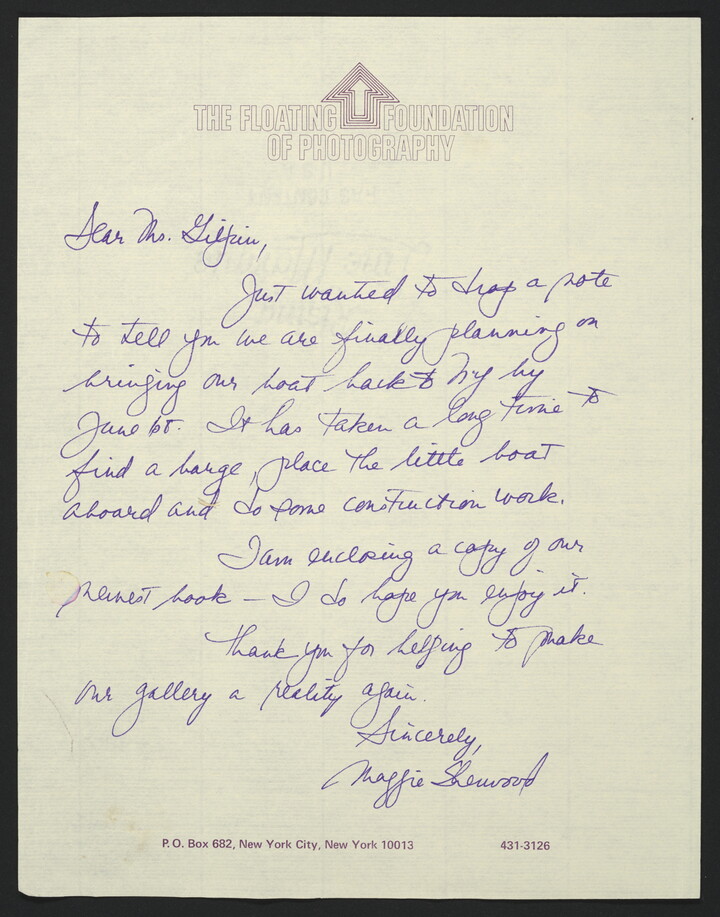 THE FLOATING FOUNDATION
OF PHOTOGRAPHY
Dear Ms. Gilpin,
Just wanted to drop a note
to tell you we are finally planning on
bringing our boat back to NY by
June 1st. It has taken a long time to
find a barge, place the little boat
aboard and do some construction work.
I am enclosing a copy of our
newest book — I do hope you enjoy it.
Thank you for helping to make
our gallery a reality again.
Sincerely,
Maggie Sherwood
P.O. Box 682, New York City, New York 10013 431-3126